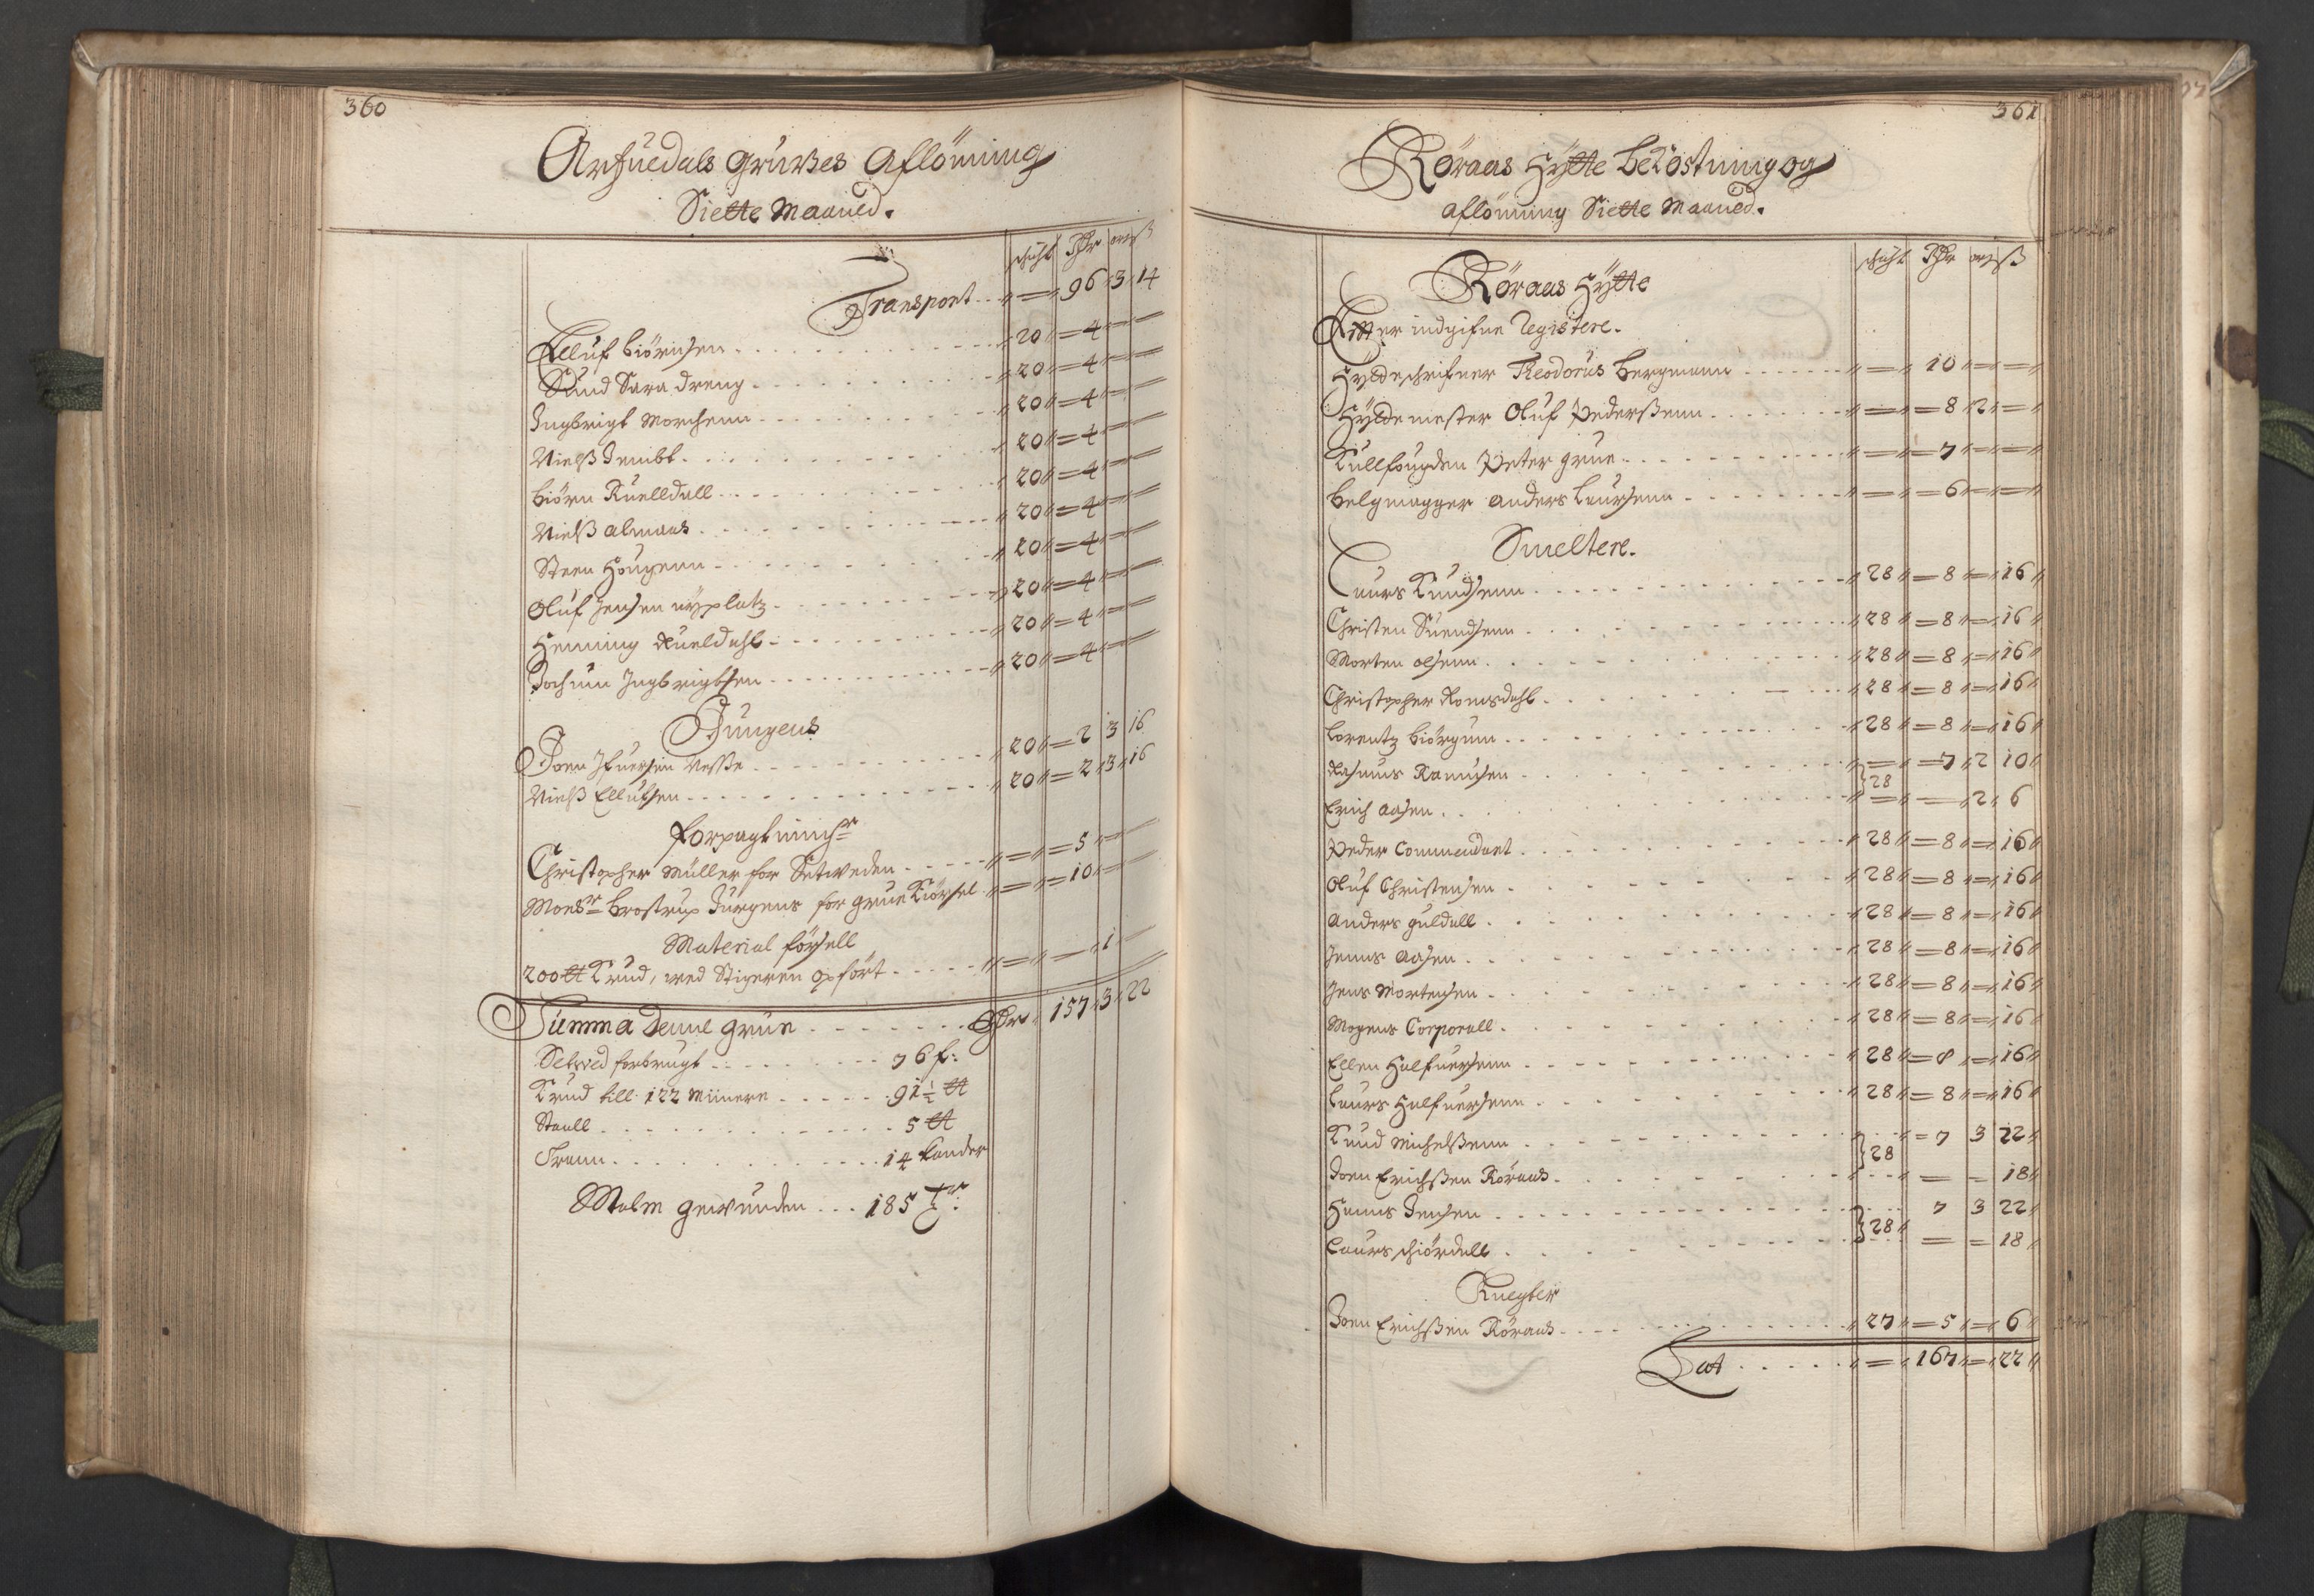 360
Arfuedals Grufves Aflönning
Siette Maaned.
schicht Rdr ort ß
Transport . . " = " 96 " 3 " 14
Elluf Biörnsen . . . " 20 " = 4 " = " =
Knud Sara dreng . . . " 20 " = 4 " = " =
Ingbrigt Morthenn . . . " 20 " = 4 " = " =
Nielß Jembt . . . " 20 " = 4 " = " =
Biörn Kuelldall . . . " 20 " = 4 " = " =
Nielß Almaas . . . " 20 " = 4 " = " =
Steen Hougenn . . . " 20 " = 4 " = " =
Oluf Jensen nyplatz . . . " 20 " = 4 " = " =
Henning Kueldahl . . . " 20 " = 4 " = " =
Jochum Ingbrigtsen . . . " 20 " = 4 " = " =
Jungens
Joen Ifuersen . . . " 20 " = 2 " 3 " 16
Nielß Ellufsen . . . " 20 " = 2 " 3 " 16
Forpagtning
Christopher Müller for Setweden . . . " = " = 5 " = " =
Monsr Brostrup Jurgens for grue Kiörsel " = " = 10 " = " =
Material försell
200 tt Krud, ved Stigeren opfört . . . " = " = " 1 " =
Summa denne grue . . . Rdr " 157 " 3 " 22
Setved forbrugt . . . 76 f:
Krud till 122 Miinere . . . 91 1/2 tt
Staall . . . 5 tt
Trann . . . 14 Kander
Malm gewunden . . . 185 tr
361
Röraas Hytte Bekostning og
aflönning Siette Maaned.
schicht Rdr ort ß
Röraas Hytte
Efter indgifne Registere.
Hytteschrifver Theodorus Bergmann . . . " = " 10 " = " = "
Hyttemester Oluf Pederßenn . . . " = " = 8 " 2 " = "
Kullfougden Peter grue . . . " = " = 7 " = " = "
Belgmagger Anders Laursenn . . . " = " = 6 " = " = "
Smeltere.
Laurs Knudsenn . . . " 28 " = 8 " = " 16 "
Christen Suendsenn . . . " 28 " = 8 " = " 16 "
Morten olsenn . . . " 28 " = 8 " = " 16 "
Christopher Romsdahl . . . " 28 " = 8 " = " 16 "
Lorentz Biörgum . . . " 28 " = 8 " = " 16 "
Rasmus Ramusen . . . " = " = 7 " 2 " 10 "
28
Erich Aasen . . . " = " = " 2 " 6
Peder Commendant . . . " 28 " = 8 " = " 16 "
Oluf Christensen . . . " 28 " = 8 " = " 16 "
Anders guldall . . . " 28 " = 8 " = " 16 "
Jenns Aasen . . . " 28 " = 8 " = " 16 "
Jens Mortensen . . . " 28 " = 8 " = " 16 "
Mogens Corporall . . . " 28 " = 8 " = " 16 "
Ellen Halfuersenn . . . " 28 " = 8 " = " 16 "
Laurs Halfuersenn . . . " 28 " = 8 " = " 16 "
Knud Michelßenn . . . " = 7 3 22 "
28
Joen Erichßen Röraas . . . = = 18 "
Hanns Jensen . . . 7 3 22 "
28 "
Laurs schiördall . . . = = 18 "
Knegter
Joen Erichßen Röraas . . . " 27 " = 5 " = " 6 "
Lat . . . " = " 167 " = " 22 "